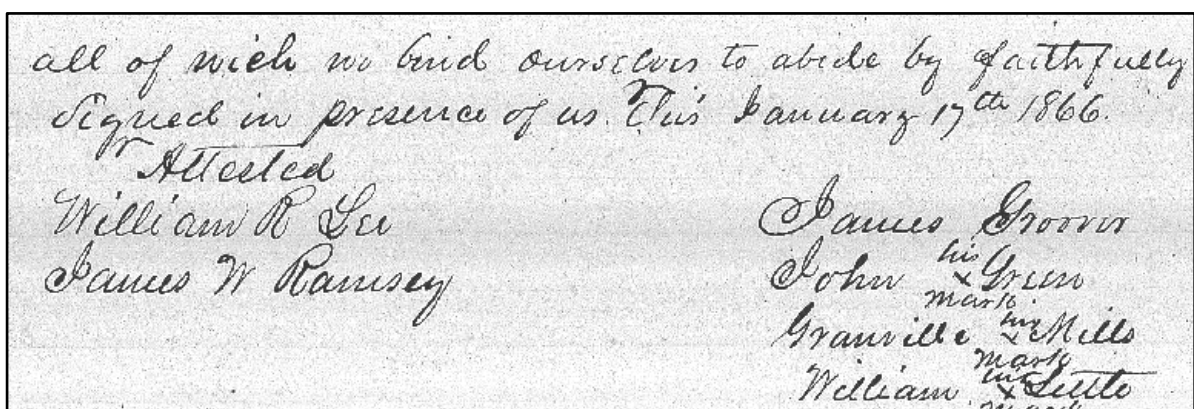 all of wich we bind ourselves to abide by faithfully
Signed in presence of us. This January 17th 1866.
Attested
William R Lee
James W Ramsey
James Groover
his
John x Green
mark
his
Granville x Mills
mark
his
William x Little
mark